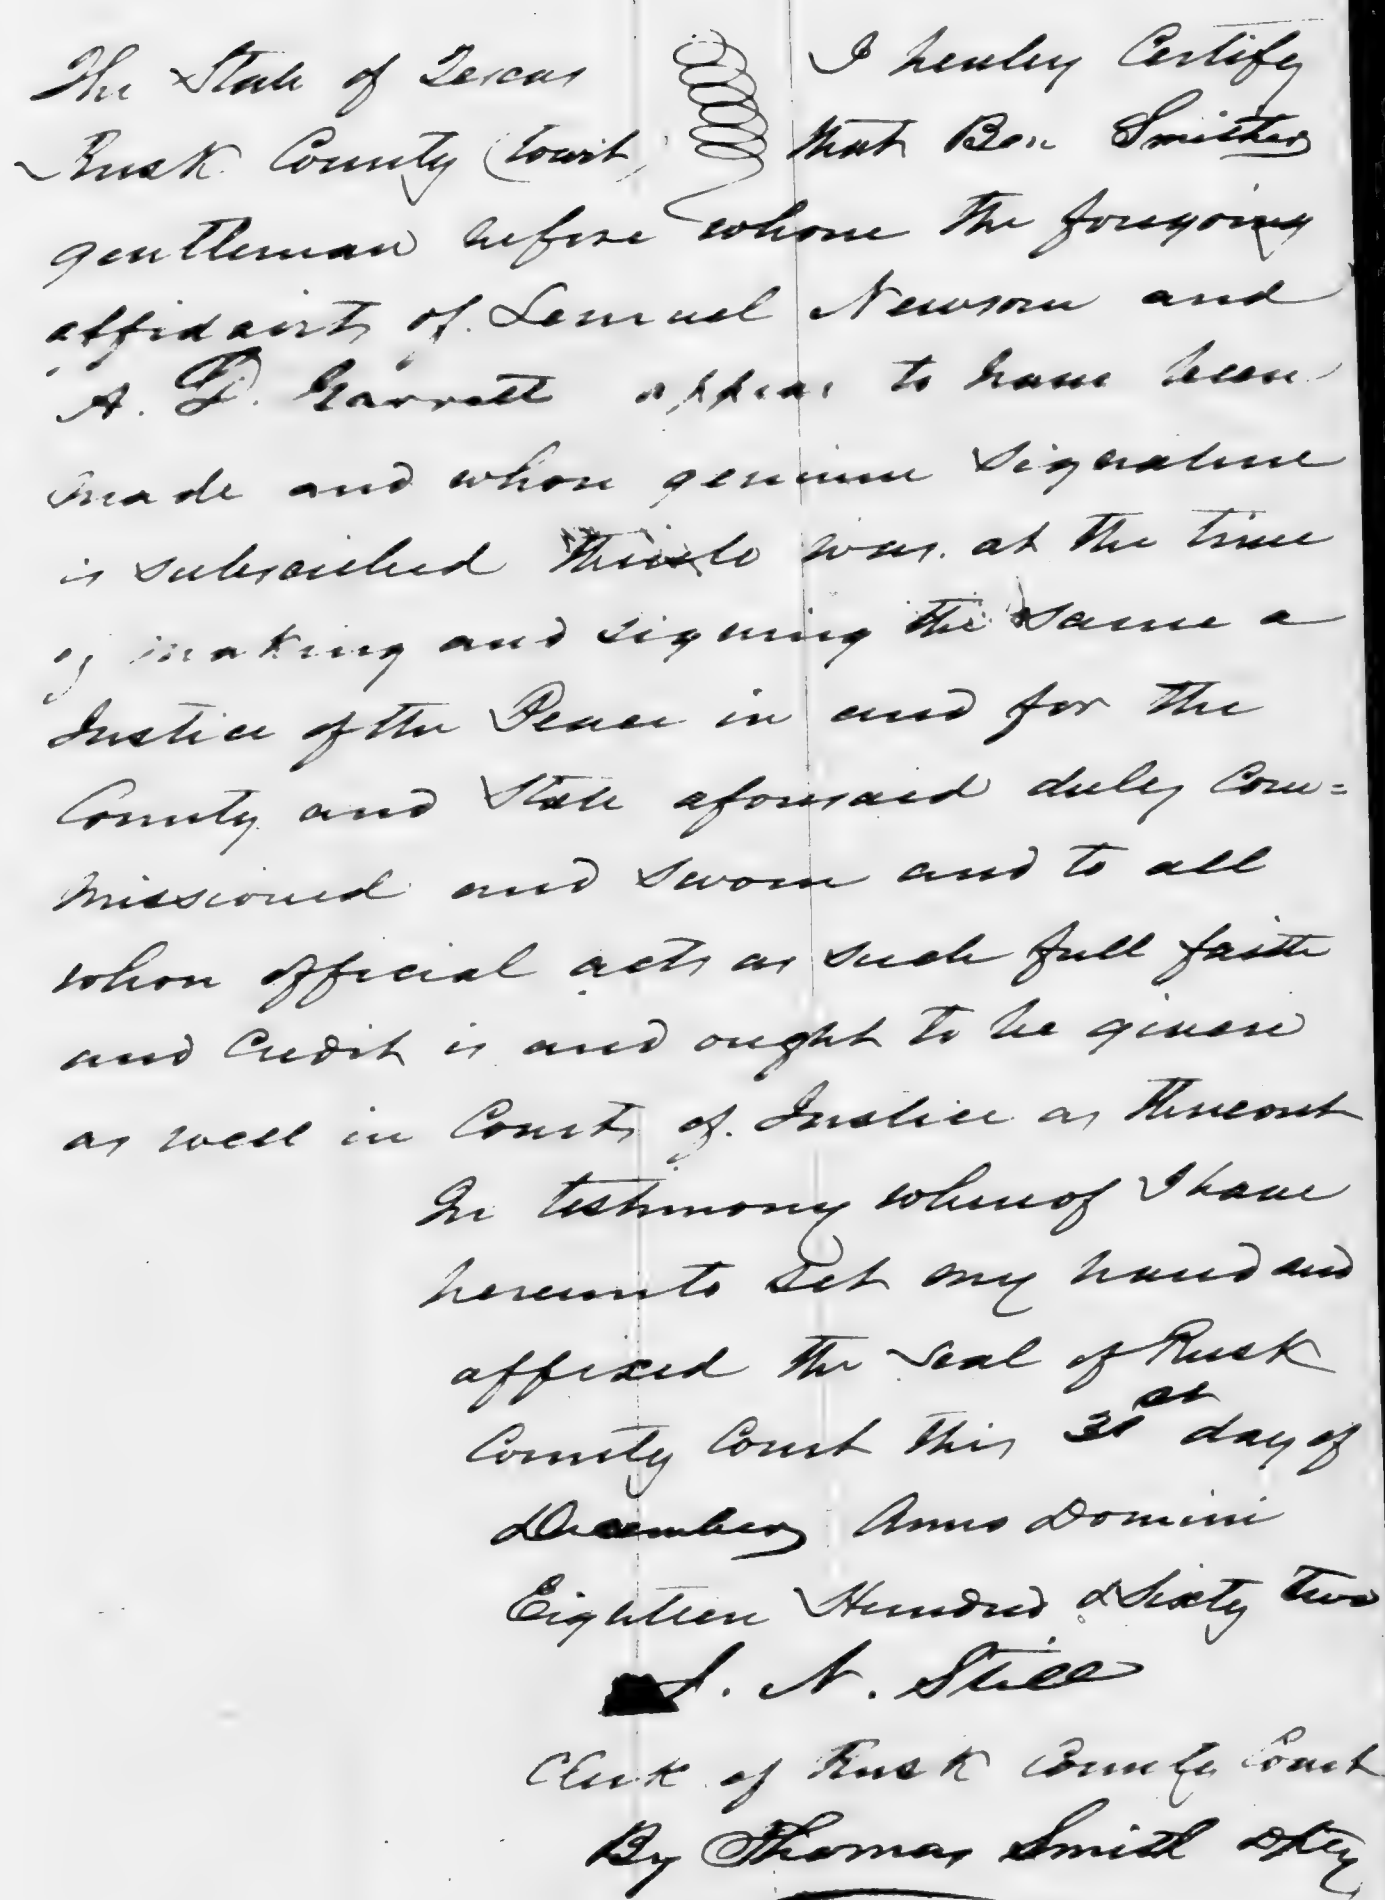 The State of Texas I hereby Certify
Rusk County Court, that Ben Smither
gentleman before whom the foregoing
affidavits of Lemuel Newsom and
A. D. Garrett appear to have been
made and whose genuine signature
is subscribed thereto was at the time
of making and signing the same a
Justice of the Peace in and for the
County and State aforesaid duly Com=
missioned and sworn and to all
whose official acts as such full faith
and Credit is and ought to be given
as well in Courts of Justice as thereout
In testimony whereof I have
hereunto set my hand and
affixed the seal of Rusk
County Court this 31st day of
December Anno Domini
Eighteen Hundred & Sixty two
J. N. Still
Clerk of Rusk County Court
By Thomas Smith Dpty